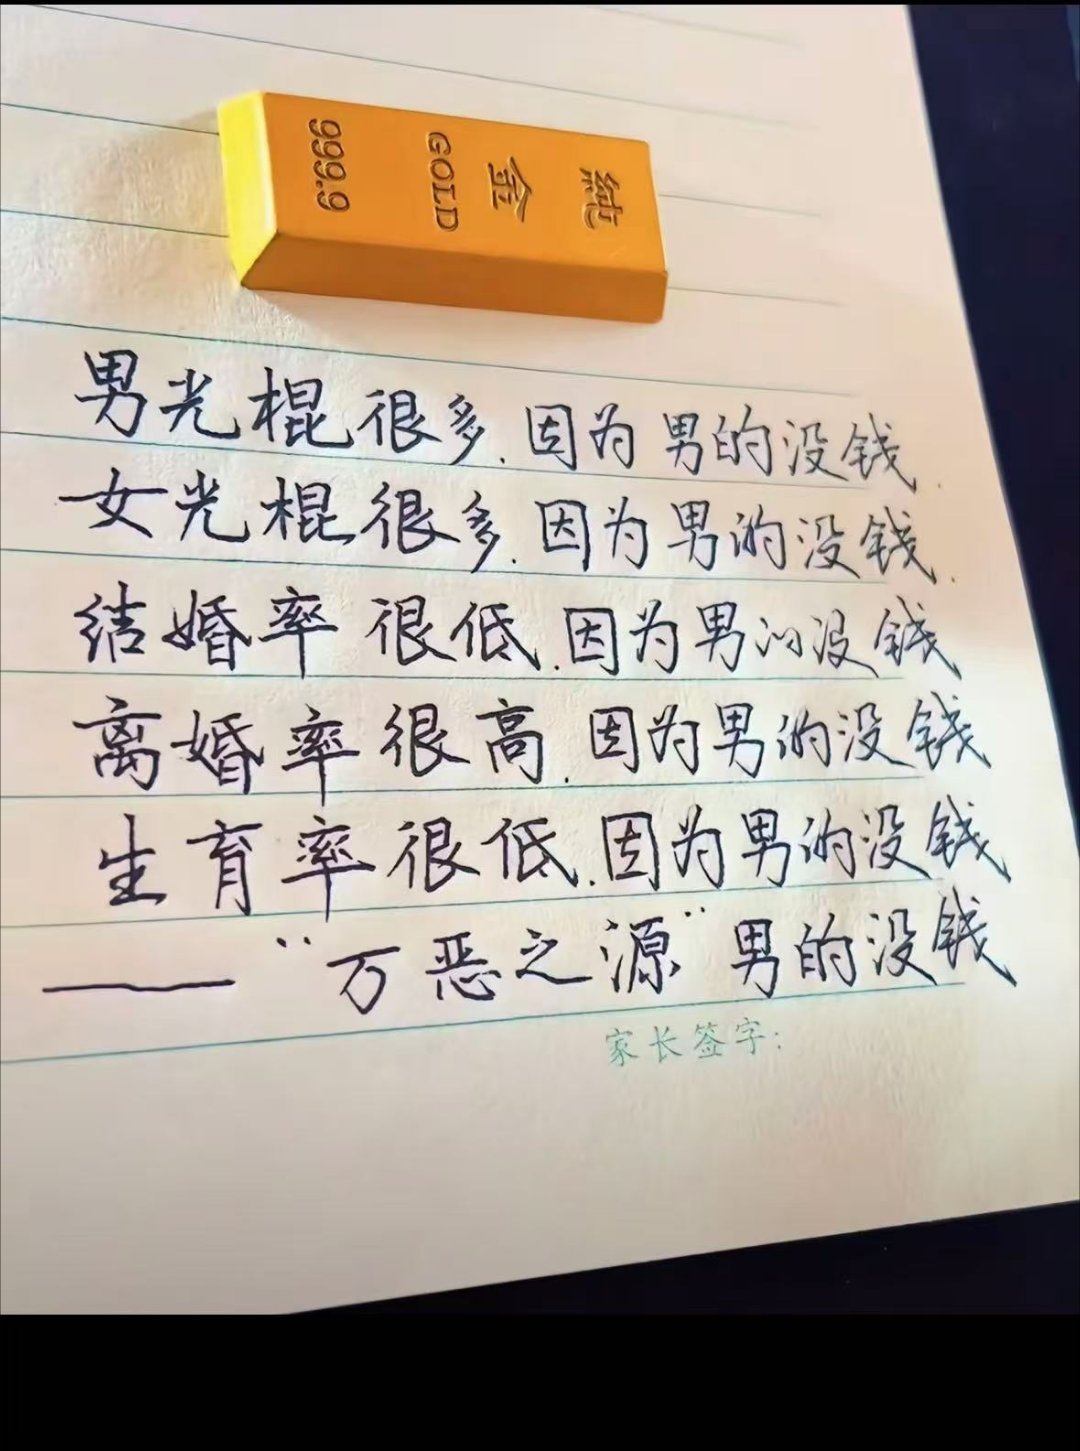 純金
GOLD
999.9
男光棍很多.因为男的没钱.
女光棍很多.因为男的没钱.
结婚率很低.因为男的没钱
离婚率很高.因为男的没钱
生育率很低.因为男的没钱
——“万恶之源”男的没钱
家长签字: